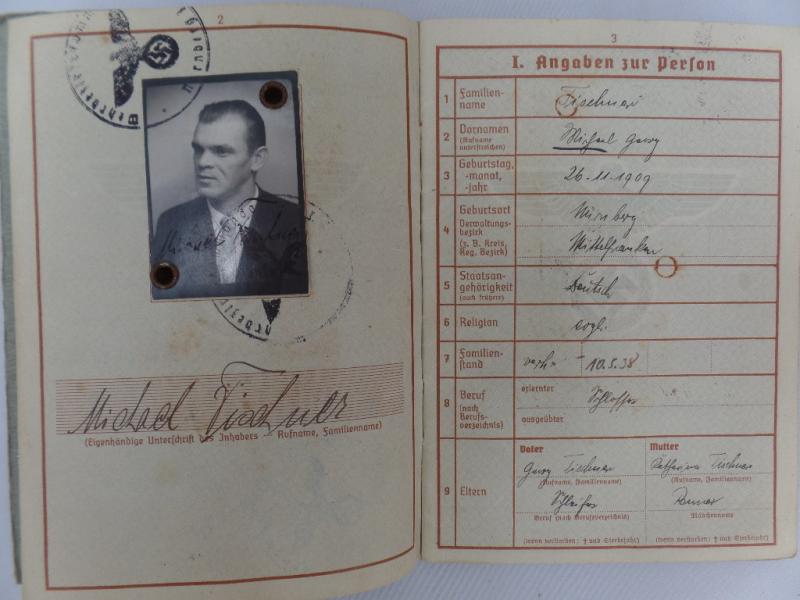 2
Michael Fischner
(Eigenhändige Unterschrift des Inhabers — Rufname, Familienname)
3
I. Angaben zur Person
1 Familien-
name
2 Vornamen Michael Georg
(Rufname
unterstreichen)
3 Geburtstag, 26-11-1909
-monat,
-jahr
4 Geburtsort Nürnberg
Verwaltungs-
bezirk Mittelfranken
(z. B. Kreis,
Reg. Bezirk)
5 Staatsan- Deutsch
gehörigkeit
(auch frühere)
6 Religion evgl.
7 Familien- 10.5.38
stand
8 Beruf erlernter Schlosser
(nach
Berufs- ausgeübter
verzeichnis)
9 Eltern
Vater Mutter
Georg Katharina
(Rufname, Familienname) (Rufname, Familienname)
Schleifer
Beruf (nach Berufsverzeichnis) Mädchenname
(wenn verstorben: † und Sterbejahr) (wenn verstorben: † und Sterbejahr)